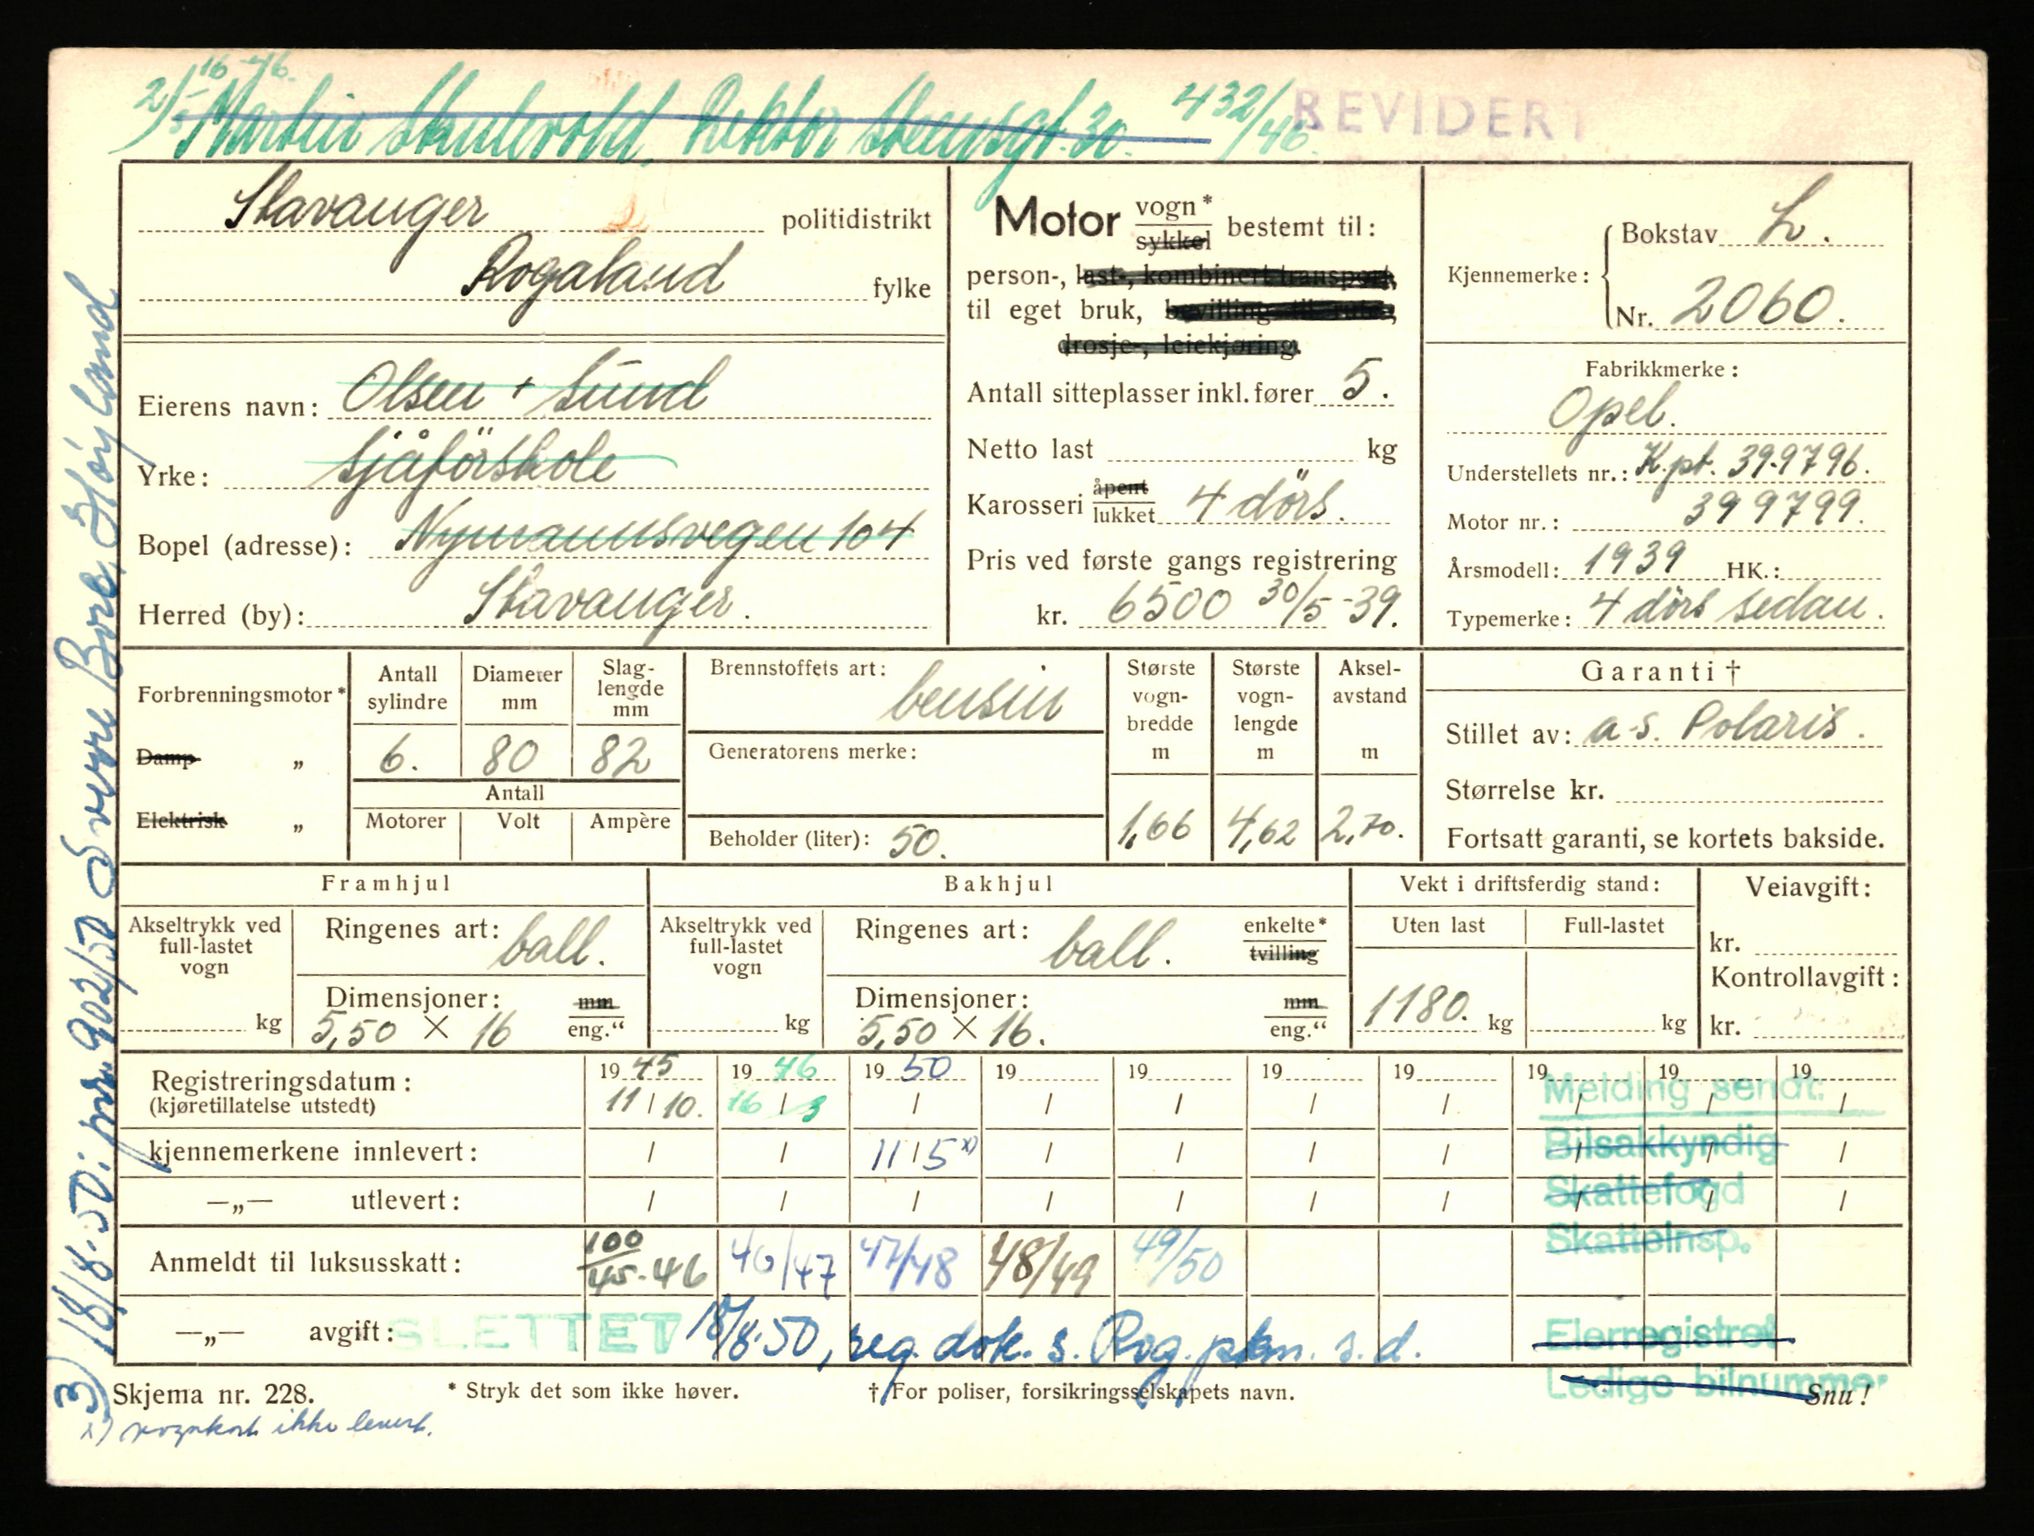 16 - 46.
2) Martin Skulevold, Rektor Stensgt. 30. 432/46.
REVIDERT
Stavanger politidistrikt
Rogaland fylke
Eierens navn: Olsen + Sund
Yrke: Sjåförskole
Bopel (adresse): Nymannsvegen 104
Herred (by): Stavanger.
Motor vogn* sykkel bestemt til:
person-, last-, kombinert transport,
til eget bruk, bevilling til rute,
drosje-, leiekjøring.
Antall sitteplasser inkl. fører 5.
Netto last kg
Karosseri åpent lukket 4 dörs.
Pris ved første gangs registrering
kr. 6500 30/5-39.
Kjennemerke: Bokstav L.
Nr. 2060.
Fabrikkmerke:
Opel.
Understellets nr.: K.pt. 39-9796.
Motor nr.: 399799.
Årsmodell: 1939 HK.:
Typemerke: 4 dörs sedan.
Forbrenningsmotor*
Damp „
Elektrisk „
Antall sylindre
Diameter mm
Slag-lengde mm
6. 80 82
Antall
Motorer Volt Ampère
Brennstoffets art: bensin
Generatorens merke:
Beholder (liter): 50.
Største vogn-bredde m
Største vogn-lengde m
Aksel-avstand m
1,66 4,62 2,70.
Garanti †
Stillet av: a-s. Polaris.
Størrelse kr.
Fortsatt garanti, se kortets bakside.
Framhjul
Akseltrykk ved full-lastet vogn
kg
Ringenes art: ball.
Dimensjoner: mm
5,50 × 16 eng.“
Bakhjul
Akseltrykk ved full-lastet vogn
kg
Ringenes art: ball. enkelte* tvilling
Dimensjoner: mm
5,50 × 16. eng.“
Vekt i driftsferdig stand:
Uten last Full-lastet
1180. kg kg
Veiavgift:
kr.
Kontrollavgift:
kr.
Registreringsdatum: 19 45 19 46 19 50 19 19 19 19 19 19 19
(kjøretillatelse utstedt) 11 / 10. 16 / 3 / / / / / / / /
kjennemerkene innlevert: / / 11 / 5 x) / / / / / / /
—„— utlevert: / / / / / / / / / /
Anmeldt til luksusskatt: 100/45-46 46/47 47/48 48/49 49/50
—„— avgift: SLETTET 18/8.50, reg. dok. s. Rog. pkm. s. d.
Melding sendt:
Bilsakkyndig
Skattefogd
Skatteinsp.
Eierregistret
Ledige bilnummer
Skjema nr. 228.
* Stryk det som ikke høver.
† For poliser, forsikringsselskapets navn.
Snu!
x) vognkort ikke levert.
3) 18/8.50: pkm. 902/50 Sverre Bore, Höyland